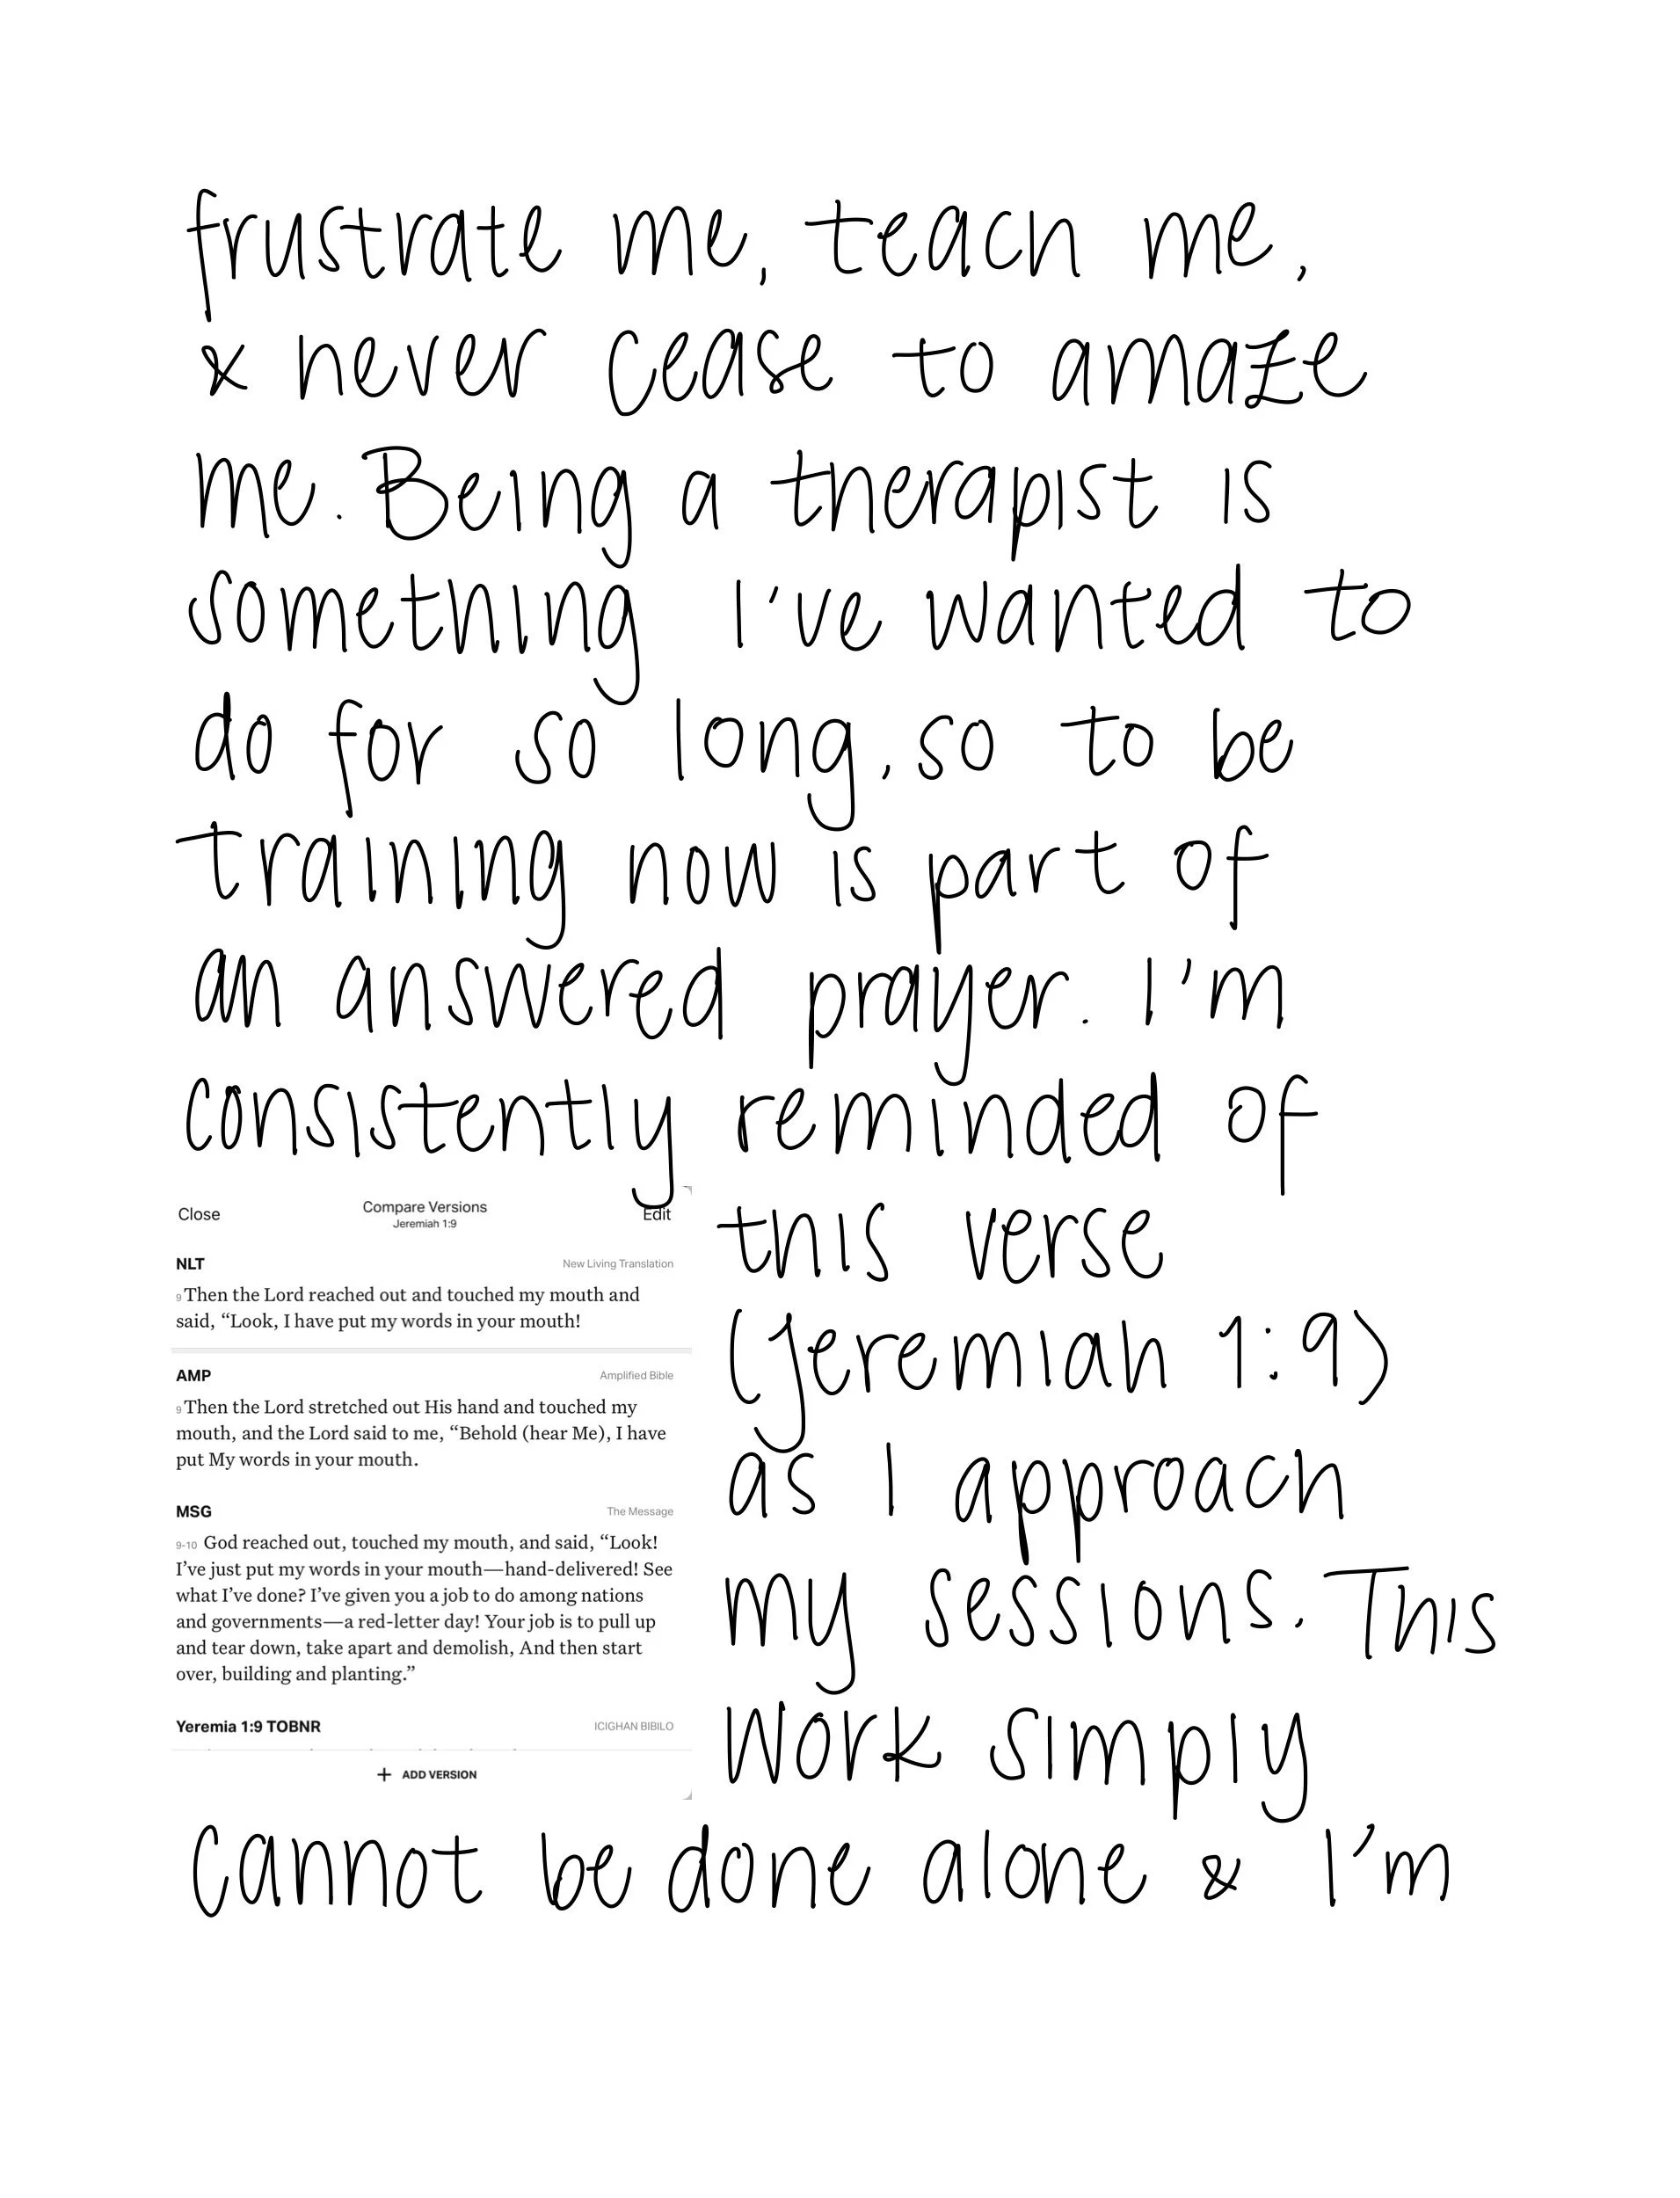 frustrate me, teach me,
& never cease to amaze
me. Being a therapist is
something I've wanted to
do for so long, so to be
training now is part of
an answered prayer. I'm
consistently reminded of
this verse
(Jeremiah 1:9)
as I approach
my sessions. This
work simply
Close Compare Versions Edit
Jeremiah 1:9
NLT New Living Translation
9 Then the Lord reached out and touched my mouth and
said, “Look, I have put my words in your mouth!
AMP Amplified Bible
9 Then the Lord stretched out His hand and touched my
mouth, and the Lord said to me, “Behold (hear Me), I have
put My words in your mouth.
MSG The Message
9-10 God reached out, touched my mouth, and said, “Look!
I’ve just put my words in your mouth—hand-delivered! See
what I’ve done? I’ve given you a job to do among nations
and governments—a red-letter day! Your job is to pull up
and tear down, take apart and demolish, And then start
over, building and planting.”
Yeremia 1:9 TOBNR ICIGHAN BIBILO
+ ADD VERSION
cannot be done alone & I'm